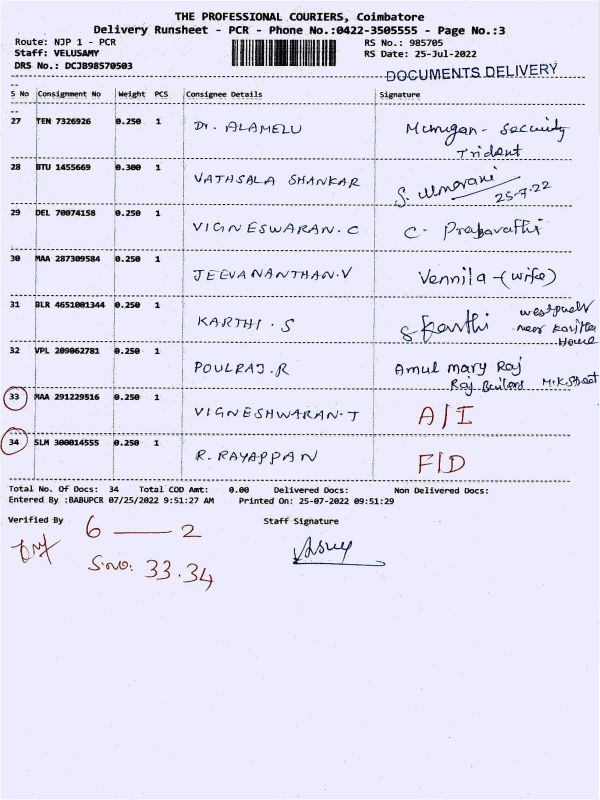 THE PROFESSIONAL COURIERS, Coimbatore
Delivery Runsheet - PCR - Phone No.:0422-3505555 - Page No.:3
Route: NJP 1 - PCR RS No.: 985705
Staff: VELUSAMY RS Date: 25-Jul-2022
DRS No.: DCJB98570503
DOCUMENTS DELIVERY
S No Consignment No Weight PCS Consignee Details Signature
27 TEN 7326926 0.250 1 Dr. ALAMELU Murugan - Security
Trident
28 BTU 1455669 0.300 1 VATHSALA SHANKAR S.
25-7-22
29 DEL 70074158 0.250 1 VIGNESWARAN. C C. Prabavathi
30 MAA 287309584 0.250 1 JEEVANANTHAN.V Vennila - (wife)
31 BLR 4651001344 0.250 1 KARTHI . S S Karthi
near
House
32 VPL 209062781 0.250 1 POULRAJ.R Amul mary Raj
Raj M.K Street
33 MAA 291229516 0.250 1 VIGNESHWARAN-T A/I
34 SLM 300014555 0.250 1 R. RAYAPPAN F/D
Total No. Of Docs: 34 Total COD Amt: 0.00 Delivered Docs: Non Delivered Docs:
Entered By :BABUPCR 07/25/2022 9:51:27 AM Printed On: 25-07-2022 09:51:29
Verified By Staff Signature
6 — 2
S.no: 33.34